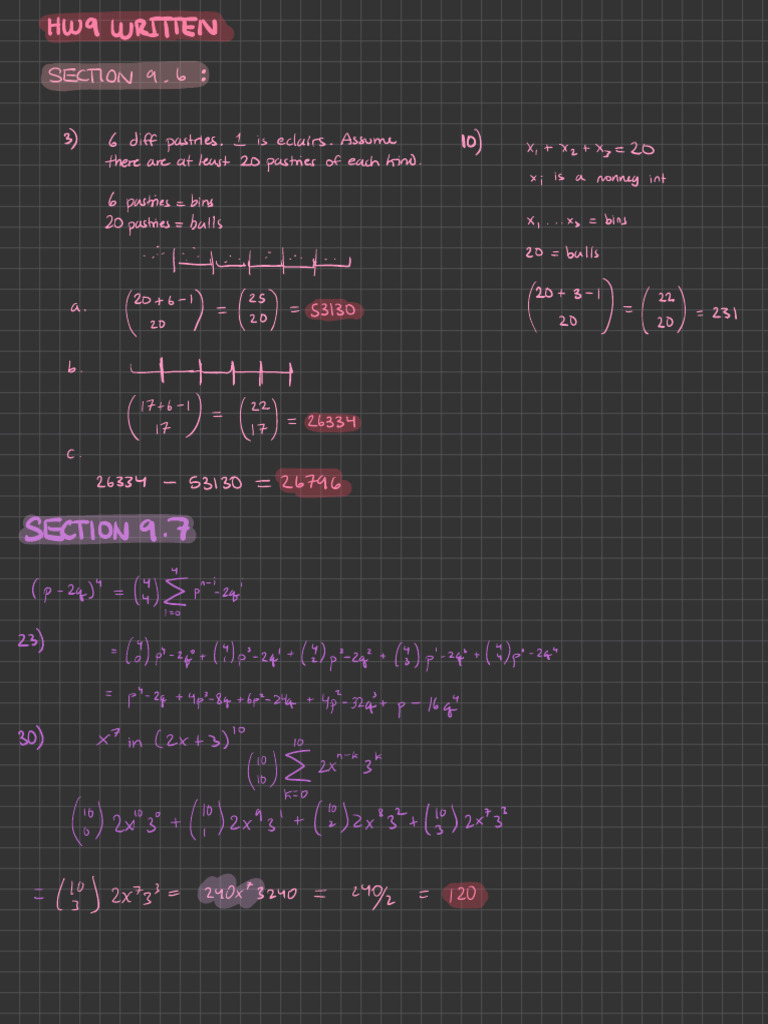 HW9 WRITTEN
SECTION 9.6:
3) 6 diff pastries. 1 is eclairs. Assume
there are at least 20 pastries of each kind.
6 pastries = bins
20 pastries = balls
a. (20+6-1 20) = (25 20) = 53130
b.
(17+6-1 17) = (22 17) = 26334
c.
26334 - 53130 = 26796
10) x₁ + x₂ + x₃ = 20
xᵢ is a nonneg int
x₁ ... x₃ = bins
20 = balls
(20 + 3 -1 20) = (22 20) = 231
SECTION 9.7
(p - 2q)⁴ = (4 4) Σ i=0 4 pⁿ⁻ⁱ - 2qⁱ
23) = (4 0) p⁴ - 2q⁰ + (4 1) p³ - 2q¹ + (4 2) p² - 2q² + (4 3) p¹ - 2q³ + (4 4) p⁰ - 2q⁴
= p⁴ - 2q + 4p³ - 8q + 6p² - 24q + 4p² - 32q³ + p - 16q⁴
30) x⁷ in (2x+3)¹⁰
(10 10) Σ k=0 10 2xⁿ⁻ᵏ 3ᵏ
(10 0) 2x¹⁰3⁰ + (10 1) 2x⁹3¹ + (10 2) 2x⁸3² + (10 3) 2x⁷3³
= (10 3) 2x⁷3³ = 240x⁷3240 = 240/2 = 120